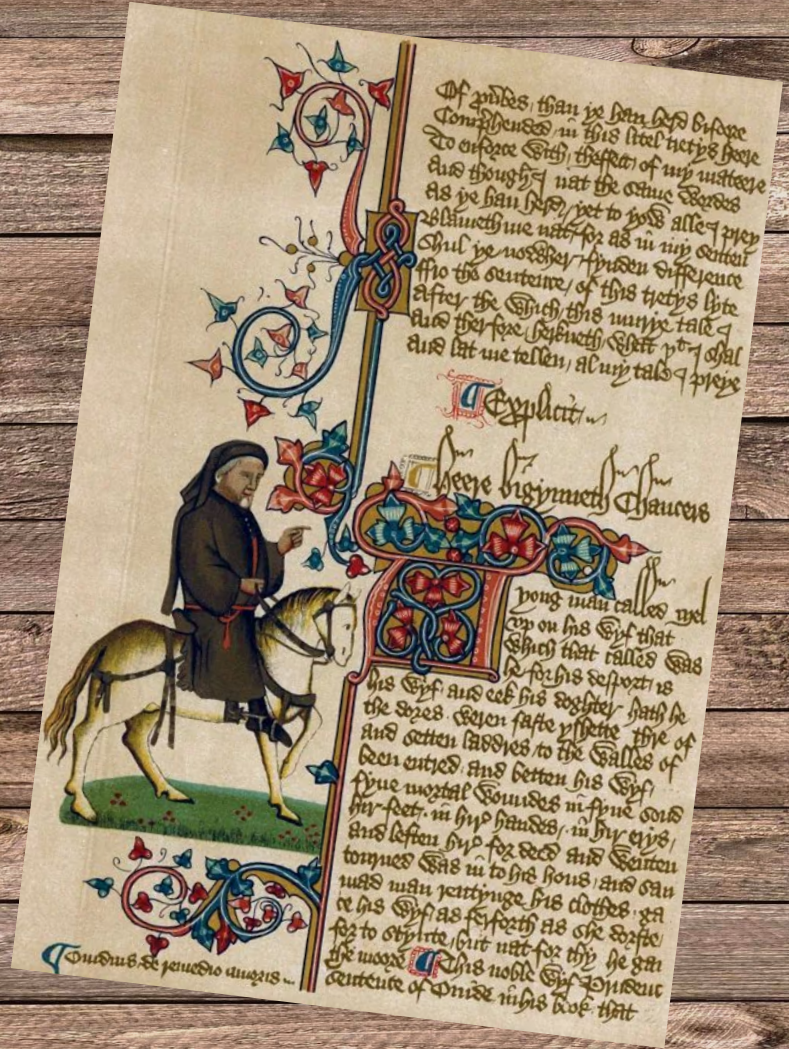 Of prouerbes, than ye han herd bifore
Comprehended, in this litel tretys heere
To enforce with, theffect, of my mateere
And though I nat the same wordes
as ye han herd, yet to yow alle I prey
Blameth me nat, for as in my senten
Shul ye nowher fynden difference
ffro the sentence, of this tretys lyte
After the which, this murye tale I
And therfore, herkneth, what yt I shal
And lat me tellen, al my tale I preye
Explicit
Heere bigynneth Chaucers
yong man called Mel
vp on his wyf that
which that called was
he for his desport, is
his wyf, and eek his doghter hath he
the dores weren faste yshette thre of
and setten laddres to the walles of
been entred, and betten his wyf,
fyue mortal woundes in fyue sond
hir feet, in hir handes, in hir erys,
and leften hir for deed and wenten
tourned was in to his hous, and sau
mad man rentynge his clothes, ga
te his wyf, as ferforth as she dorste,
for to stynte, but nat for thy he gan
the moore This noble wyf Prudenc
sentence of Ouide, in his book that
Ouidius de remedio amoris